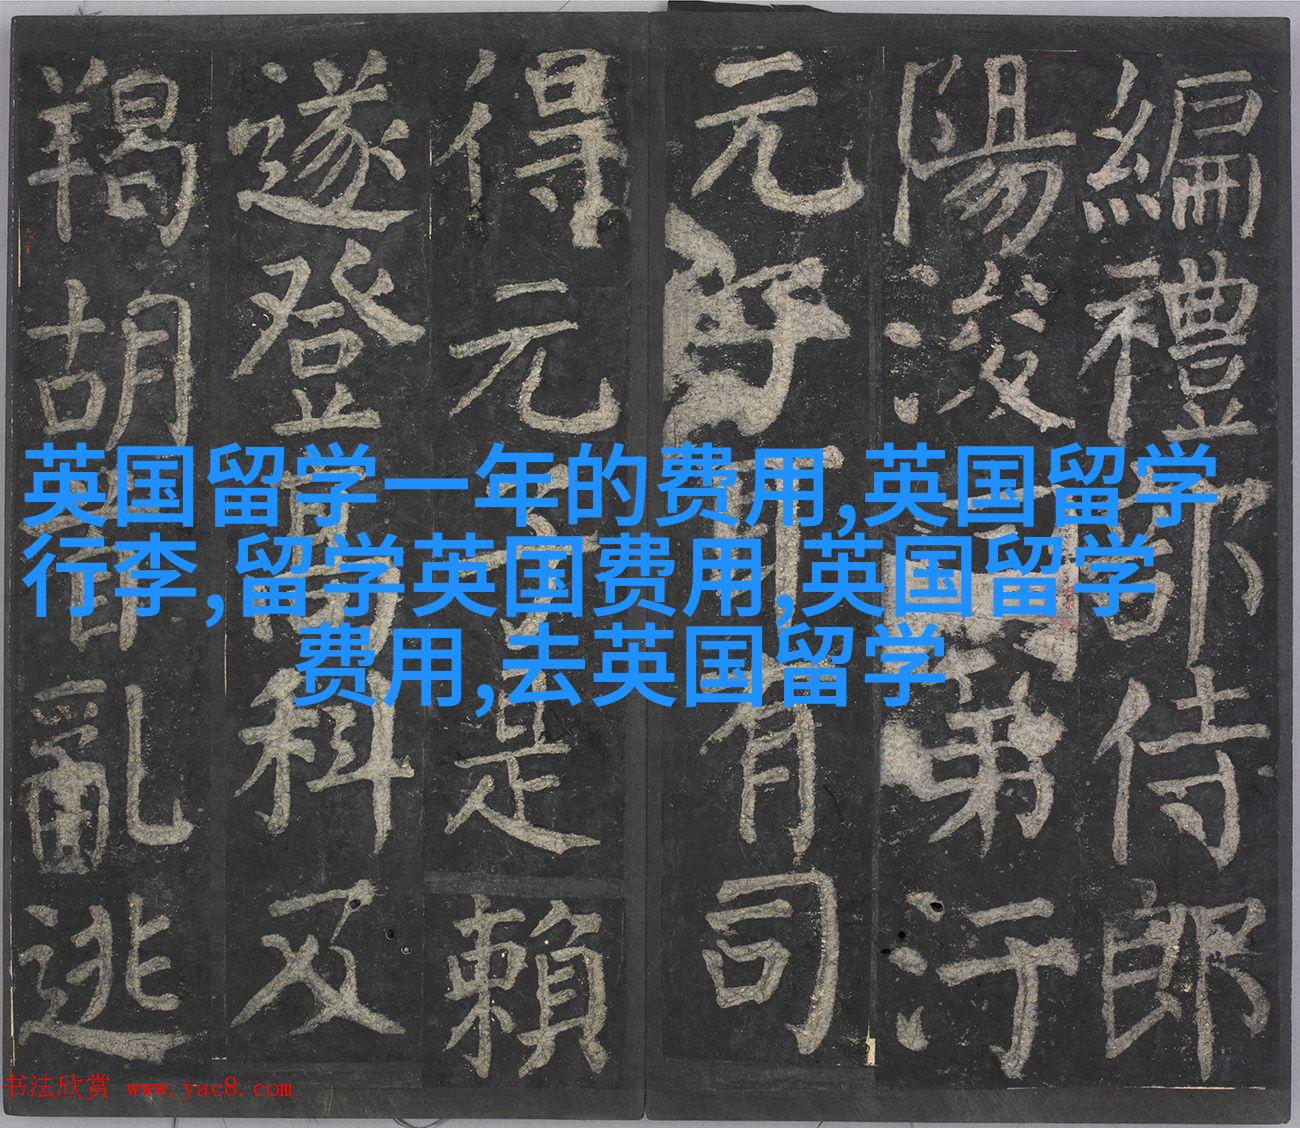 編禮部侍郎
陽浚第汙
元子耳有司
得元子是賴
遂登高科及
羯胡首亂逃
英国留学一年的费用,英国留学
行李,留学英国费用,英国留学
费用,去英国留学
书法欣赏 www.yac8.com